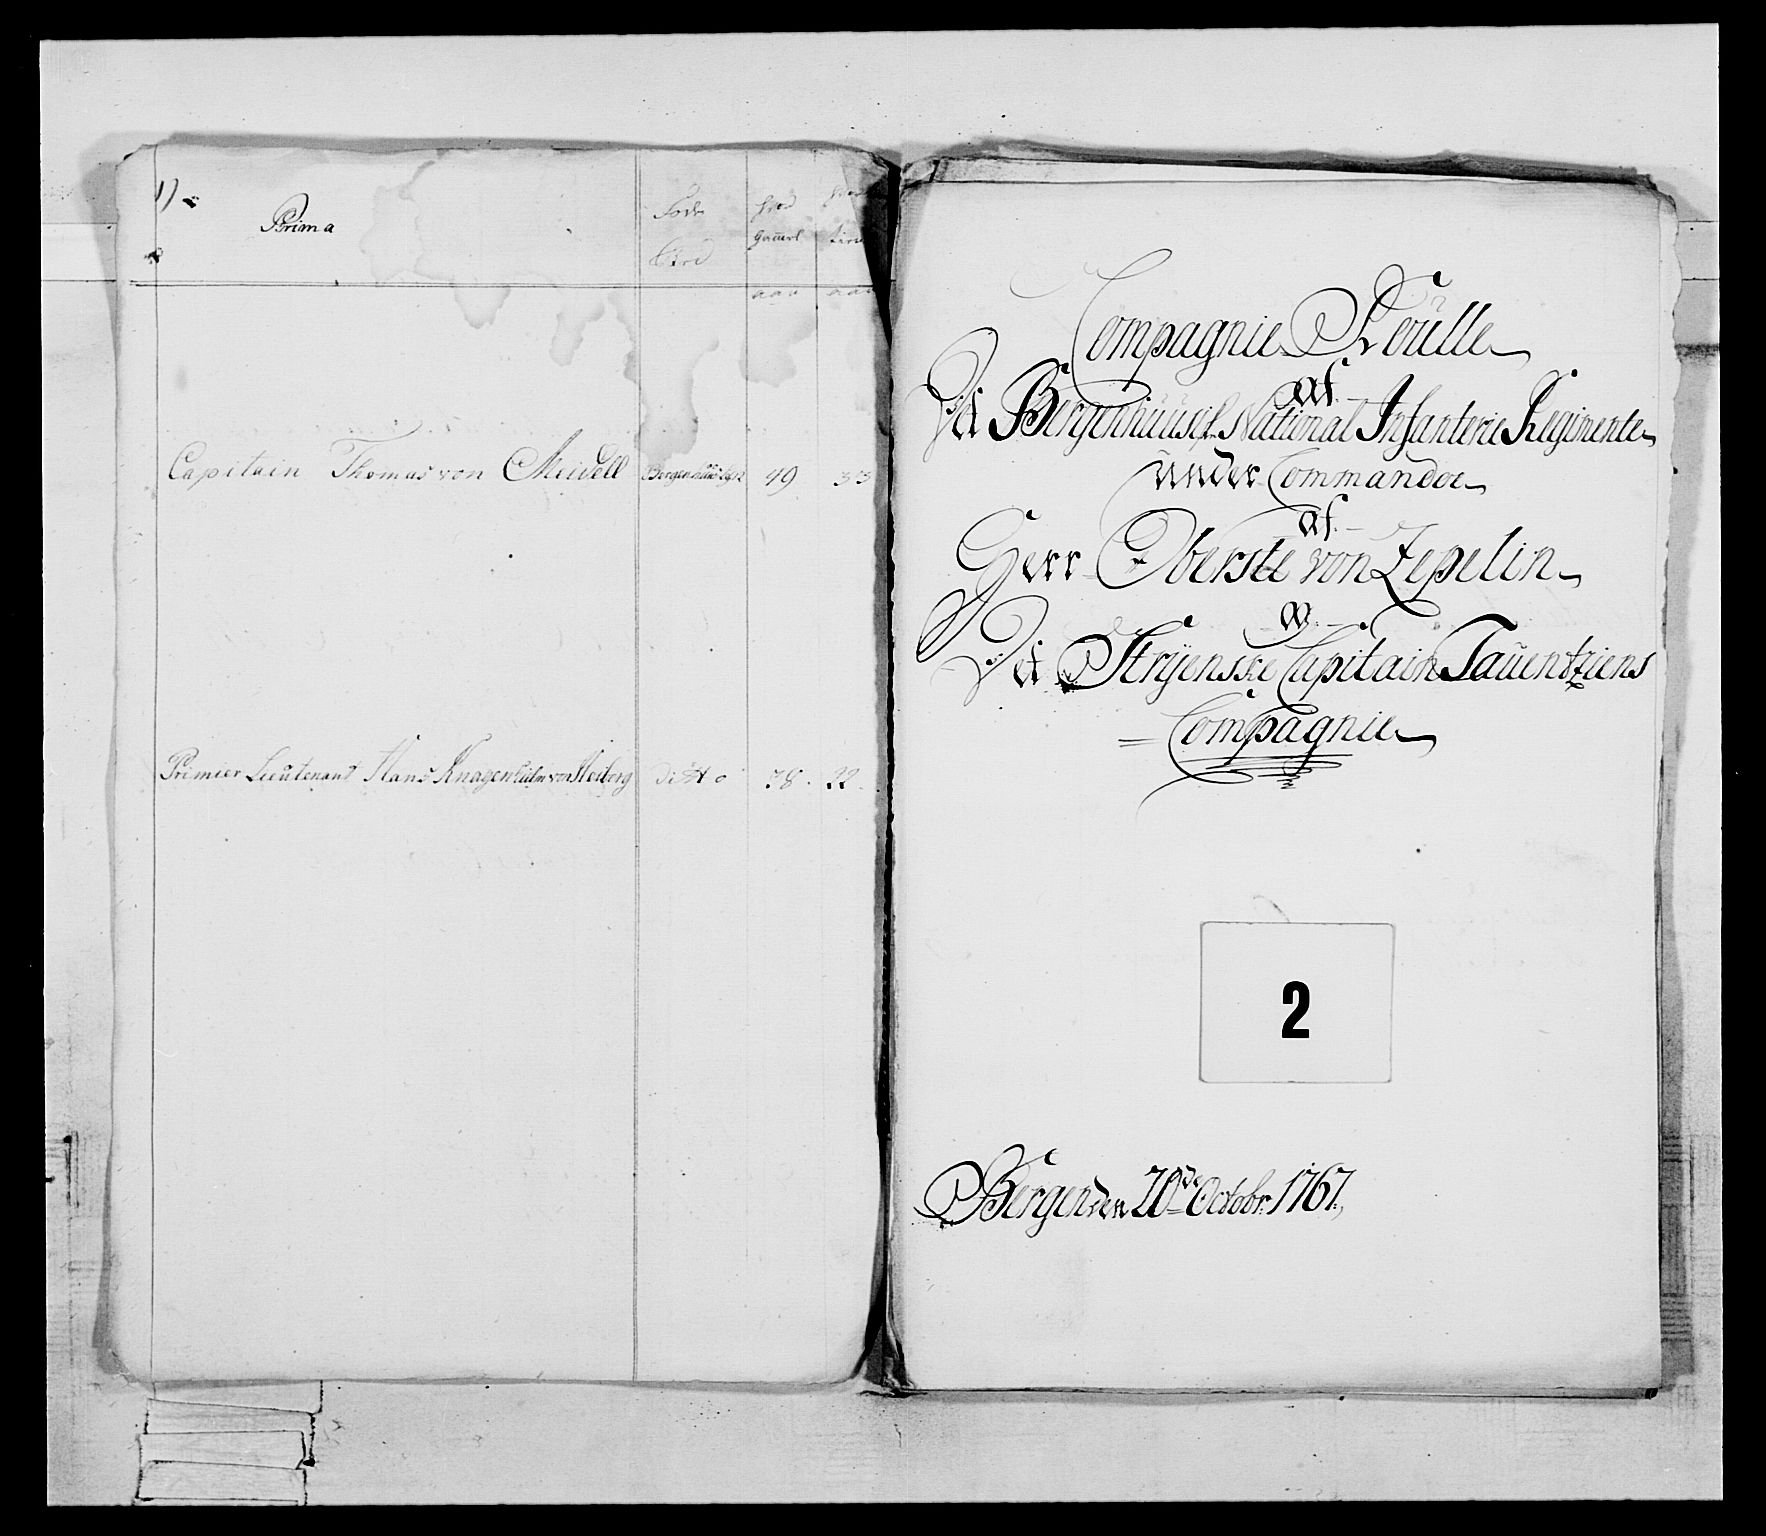 1)
Prima
Føde
Sted
hvor
gammel
aar
hvor
tient
aar
Capitain Thomas von Meidell Bergenhuus 49 33
Primier Lieutenant Hans Knagenhielm von Heiberg ditto 38. 22.
Compagnie Roulle
af
Det Bergenhuusis. National Infanterie Regimente
under Commando
af
Herr Oberste von Zepelin
og
Det Stryenske Capitain Tauentziens
Compagnie
2
Bergen den 20de Octobr: 1767.